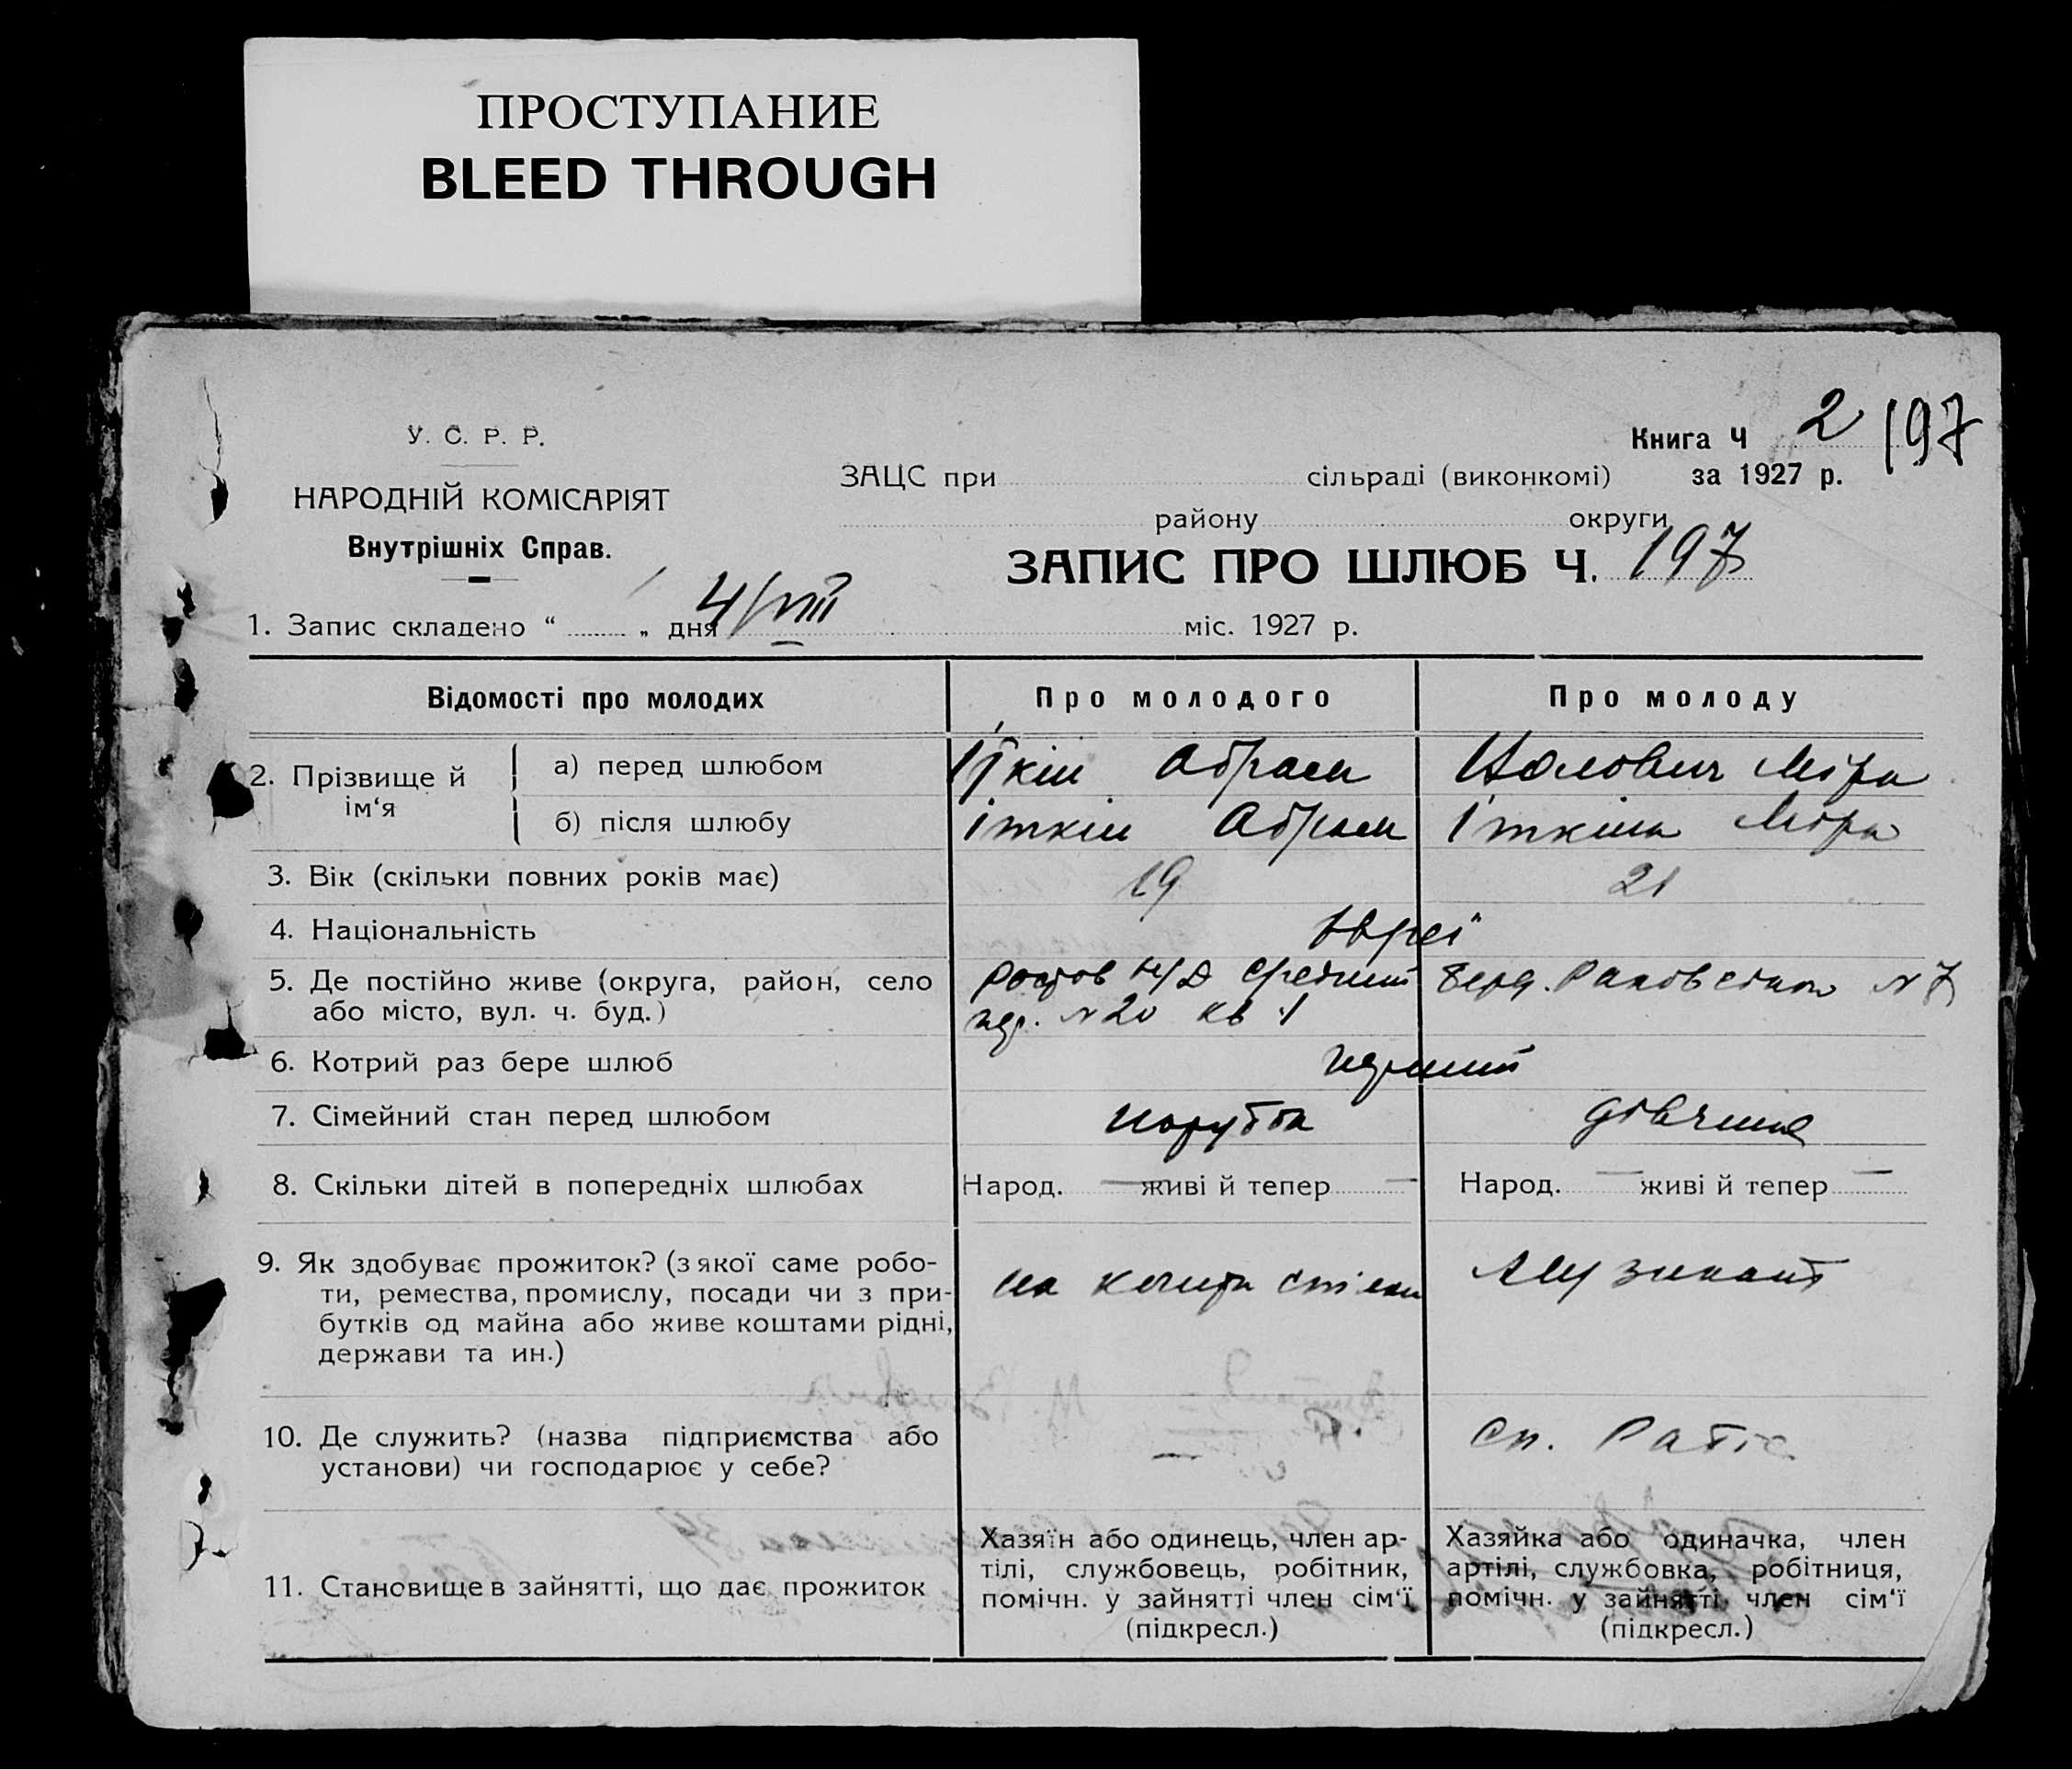 ПРОСТУПАНИЕ
BLEED THROUGH
У. С. Р. Р.
НАРОДНІЙ КОМІСАРІЯТ
Внутрішніх Справ.
Книга Ч 2 197
ЗАЦС при сільраді (виконкомі) за 1927 р.
району округи
ЗАПИС ПРО ШЛЮБ Ч. 197
1. Запис складено “ „ дня 4/VIII міс. 1927 р.
Відомості про молодих Про молодого Про молоду
2. Прізвище й ім‘я
а) перед шлюбом Іткін Абрам Міра
б) після шлюбу Іткін Абрам Іткіна Міра
3. Вік (скільки повних років має) 19 21
4. Національність Євреї
5. Де постійно живе (округа, район, село Ростов н/Д Средний Берд. N 7
або місто, вул. ч. буд.) пер. N 20 кв 1
6. Котрий раз бере шлюб перший
7. Сімейний стан перед шлюбом парубок дівчина
8. Скільки дітей в попередніх шлюбах Народ. — живі й тепер — Народ. — живі й тепер —
9. Як здобуває прожиток? (з якої саме робо-
ти, ремества, промислу, посади чи з при-
бутків од майна або живе коштами рідні,
держави та ин.)
на кошти Музикант
10. Де служить? (назва підприємства або
установи) чи господарює у себе?
— Сп. Рабіс
11. Становище в зайнятті, що дає прожиток
Хазяїн або одинець, член ар-
тілі, службовець, робітник,
помічн. у зайнятті член сім‘ї
(підкресл.)
Хазяйка або одиначка, член
артілі, службовка, робітниця,
помічн. у зайнятті член сім‘ї
(підкресл.)